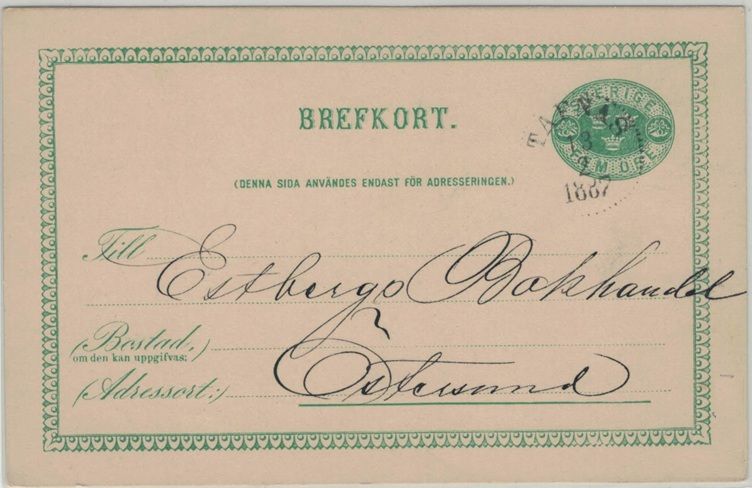 SVERIGE
FEM ÖRE
TAFNÄS
8
2
1887
BREFKORT.
(DENNA SIDA ANVÄNDES ENDAST FÖR ADRESSERINGEN.)
Till Estbergs Bokhandel
(Bostad,)
om den kan uppgifvas:
(Adressort:) Östersund